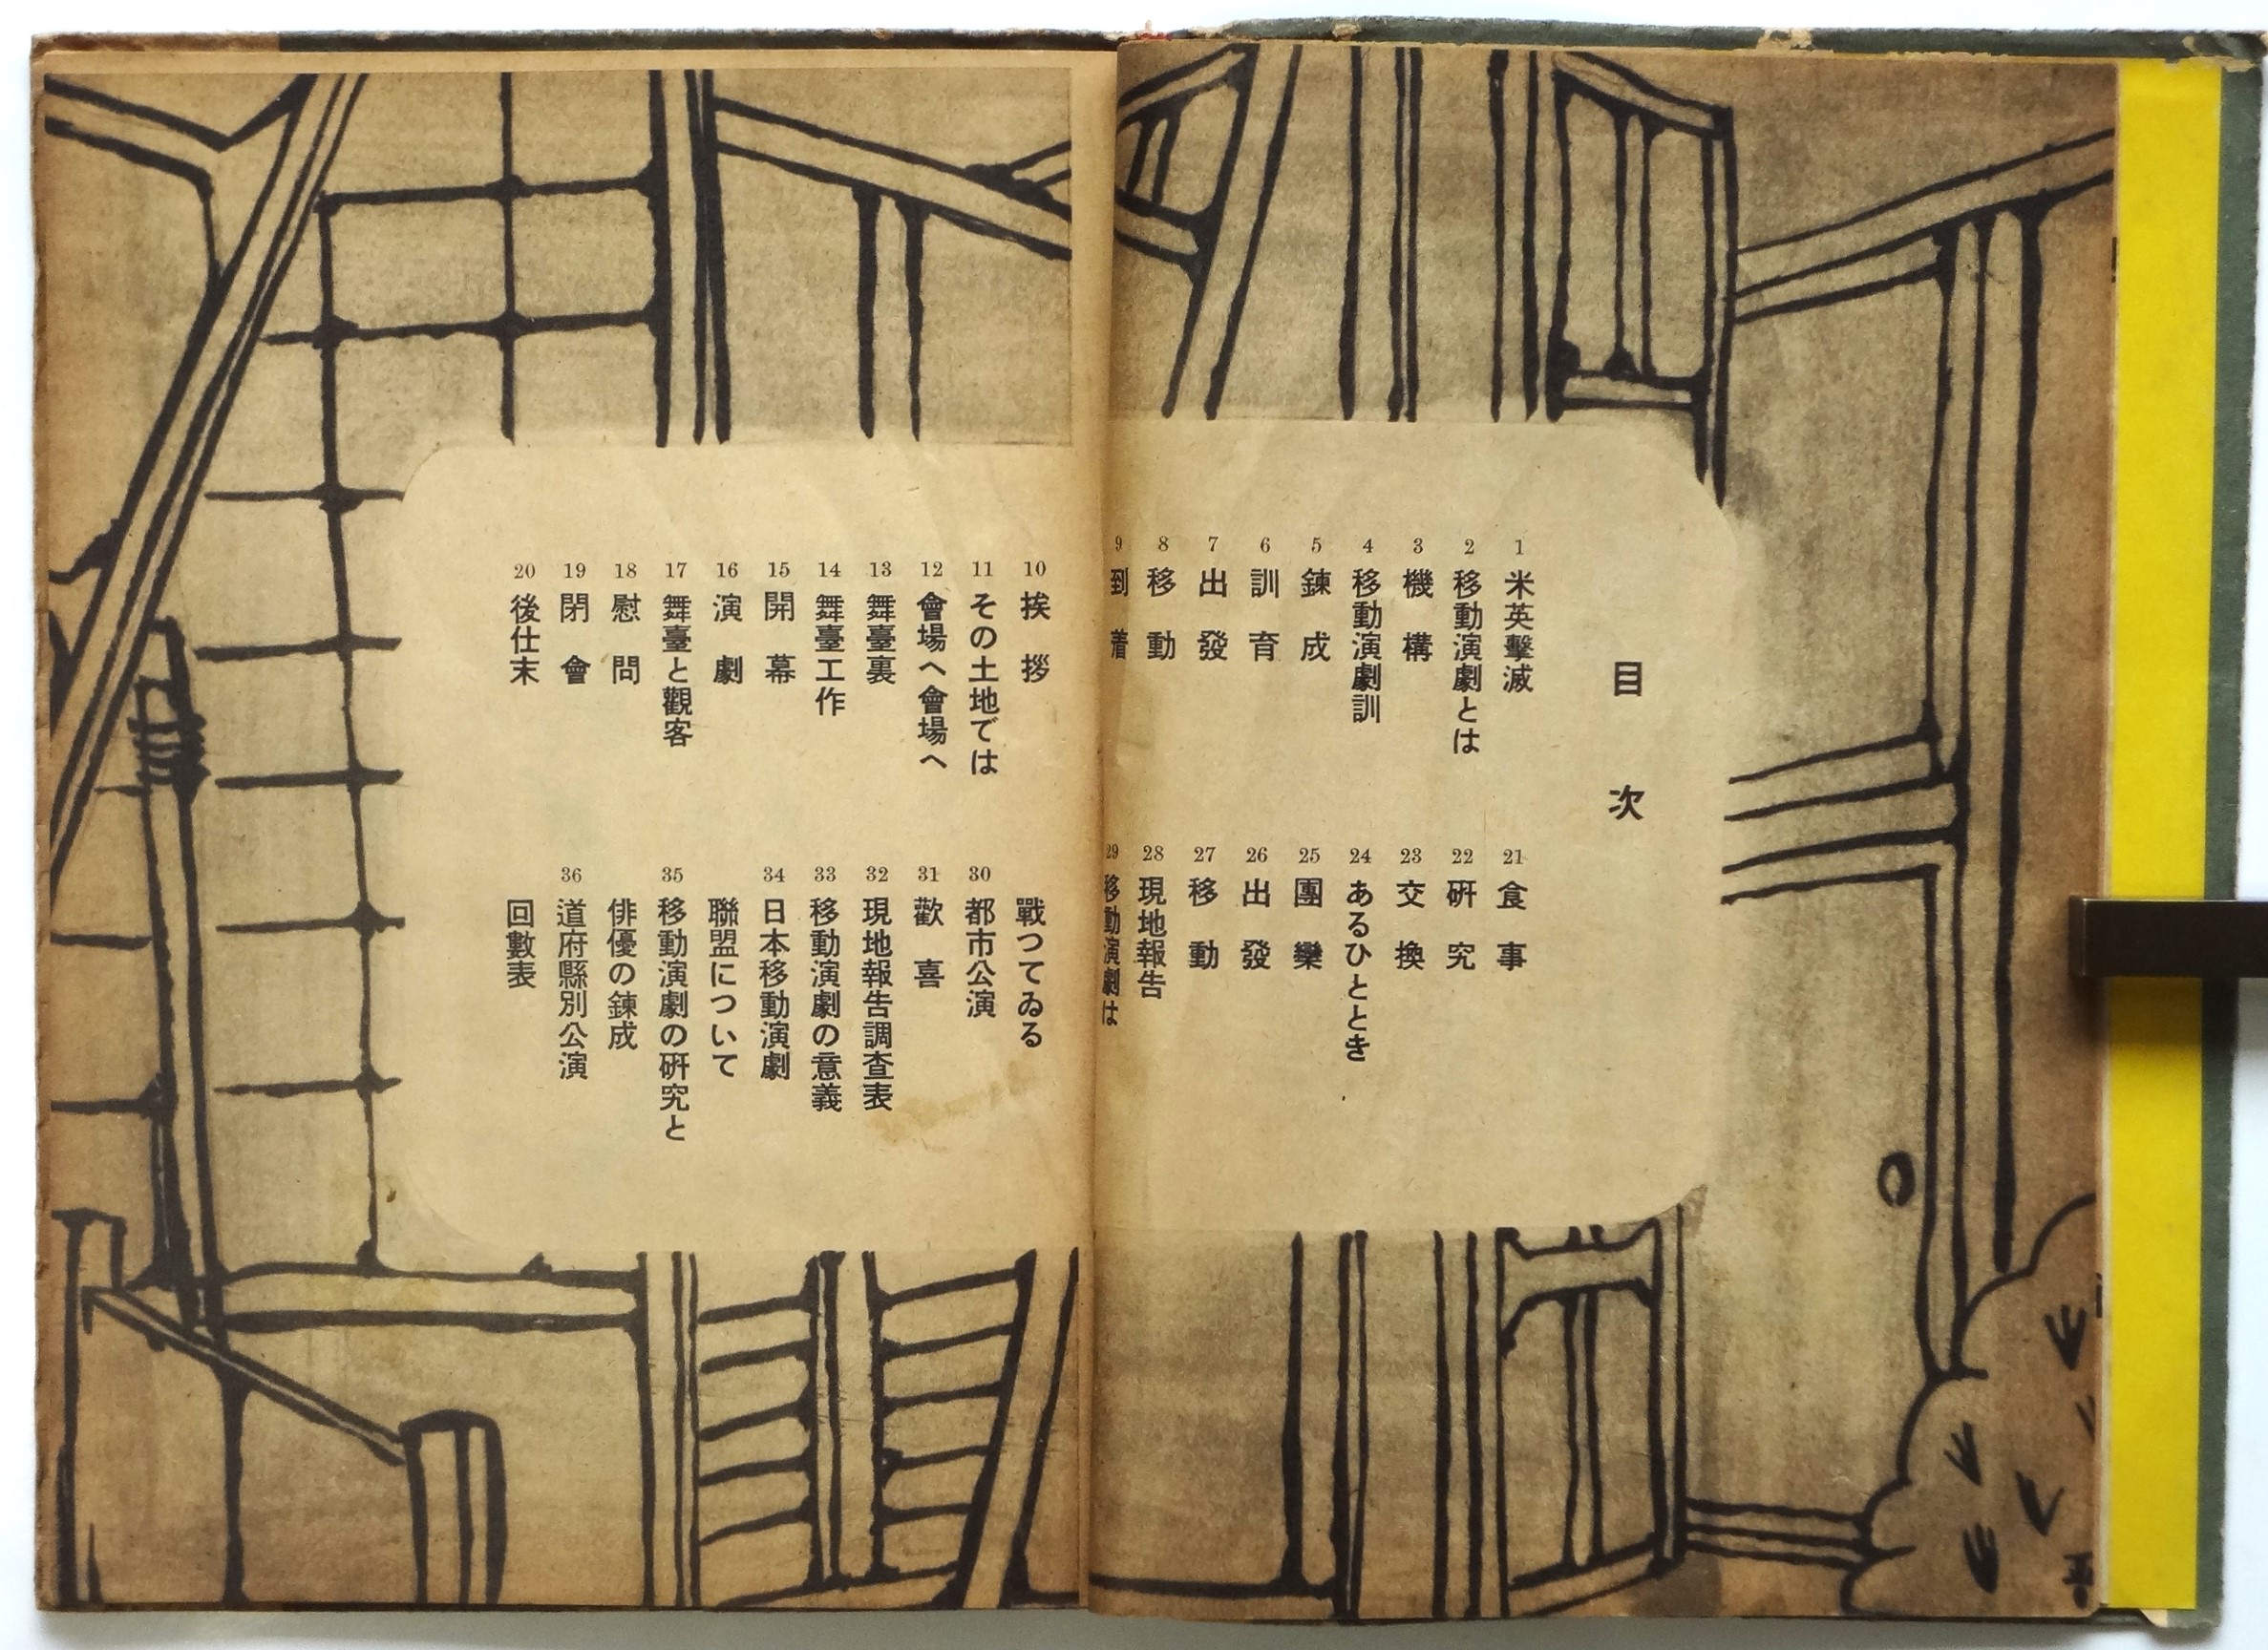 目次
1 米英擊滅
2 移動演劇とは
3 機構
4 移動演劇訓
5 鍊成
6 訓育
7 出發
8 移動
9 到着
10 挨拶
11 その土地では
12 會場へ會場へ
13 舞臺裏
14 舞臺工作
15 開幕
16 演劇
17 舞臺と觀客
18 慰問
19 閉會
20 後仕末
21 食事
22 硏究
23 交換
24 あるひととき
25 團欒
26 出發
27 移動
28 現地報告
29 移動演劇は
戰つてゐる
30 都市公演
31 歡喜
32 現地報告調查表
33 移動演劇の意義
34 日本移動演劇
聯盟について
35 移動演劇の硏究と
俳優の鍊成
36 道府縣別公演
回數表